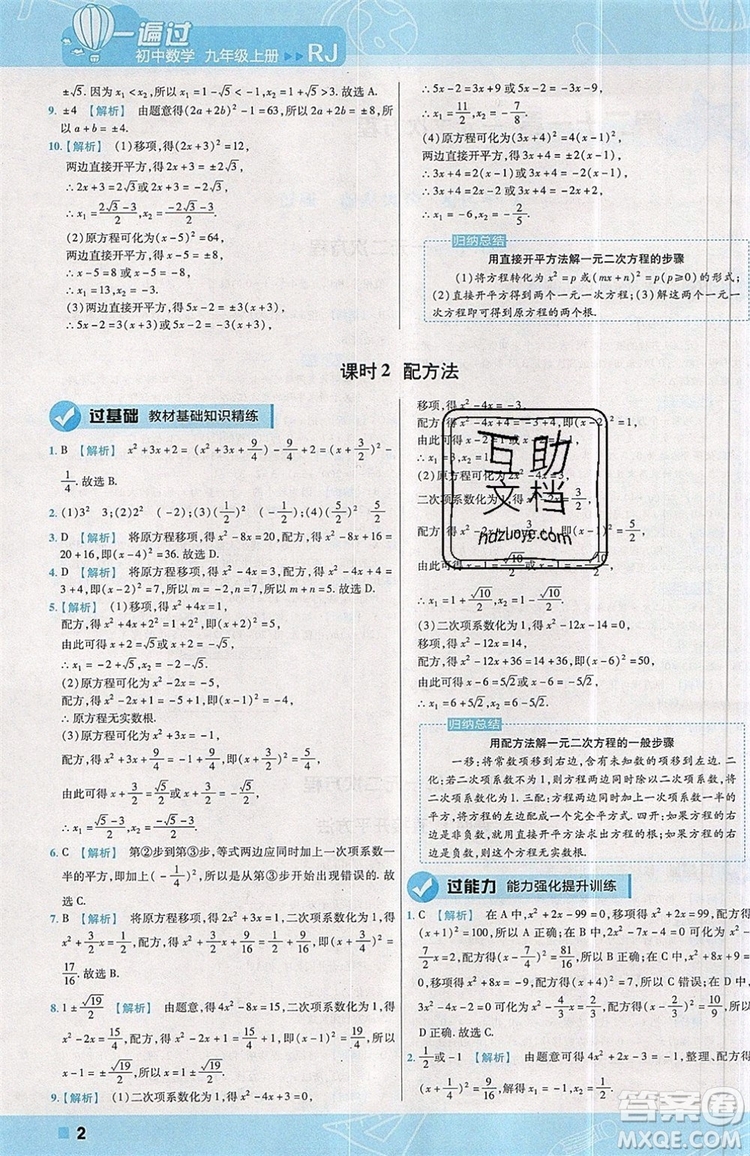 一遍过
初中数学 九年级上册 ▶▶ RJ
±√5. 因为 x₁ < x₂, 所以 x₁ = 1 - √5, x₂ = 1 + √5. 故选 A.
9. ±4 【解析】 由题意得(2a + 2b)² = 64, 所以 2a + 2b = ±8, 所以 a + b = ±4.
10.【解析】 (1)移项, 得(2x + 3)² = 12,
两边直接开平方, 得 2x + 3 = ±2√3,
∴ 2x + 3 = 2√3 或 2x + 3 = -2√3,
∴ x₁ = (2√3 - 3)/2, x₂ = (-2√3 - 3)/2.
(2)原方程可化为(x - 5)² = 0,
两边直接开平方, 得 x - 5 = 0,
∴ x₁ = x₂ = 5.
(3)两边直接开平方, 得 5x - 2 =
∴ 5x - 2 =
∴ 5x - 2 =
∴ x₁ = 11/2, x₂ = -7/8.
(4)原方程可化为(3x + 4)² =
两边直接开平方, 得 3x + 4 =
∴ 3x + 4 =
∴ x₁ = -6, x₂ = -2/5.
归纳总结
用直接开平方法解一元二次方程的步骤
(1)将方程转化为 x² = p 或(mx + n)² = p(p≥0)的形式;
(2)直接开平方得到两个一元一次方程;(3)解这两个一元一
次方程即可得到原方程的两个根.
课时2 配方法
过基础 教材基础知识精练
1. B 【解析】 x² + 3x + 2 = (x² + 3x + 9/4) + (2 - 9/4) = (x + 3/2)² -
1/4. 故选 B.
2. (1)3² 3;(2)2² 2;(3)(5/2)² 5/2;(4)(1/2)² 1/2
3. D 【解析】 将原方程移项, 得 x² - 8x = 20, 配方, 得 x² - 8x + 16 =
20 + 16, 即(x - 4)² = 36. 故选 D.
4. D 【解析】 将原方程移项, 得 x² - 4x = 3, 配方, 得 x² - 4x + 4 =
3 + 4, 即(x - 2)² = 7, 所以 m = -2, n = 7, 所以 m + n = 5. 故选 D.
5.【解析】 (1)移项, 得 x² + 4x = 1,
配方, 得 x² + 4x + 4 = 1 + 4, 即(x + 2)² = 5,
由此可得 x + 2 = √5 或 x + 2 = -√5,
∴ x₁ = -2 + √5, x₂ = -2 - √5.
(2)原方程移项, 得 x² - 2x = -5,
配方, 得 x² - 2x + 1 = -5 + 1, 即(x - 1)² = -4,
∴ 原方程无实数根.
(3)原方程可化为 x² + 3x = -1,
配方, 得 x² + 3x + 9/4 = -1 + 9/4, 即(x + 3/2)² = 5/4,
由此可得 x + 3/2 = √5/2 或 x + 3/2 = -√5/2,
∴ x₁ = (√5 - 3)/2, x₂ = (-√5 - 3)/2.
6. C 【解析】 第②步到第③步, 等式两边应同时加上一次项系数
一半的平方, 即(-b/2a)², 所以是从第③步开始出现错误的. 故
选 C.
7. B 【解析】 移项, 得 2x² - x = 1, 二次项系数化为 1, 得 x² - 1/2x =
1/2, 配方, 得 x² - 1/2x + (-1/4)² = 1/2 + (-1/4)², 即(x - 1/4)² =
17/16. 故选 B.
8. 1 ± √19/2 【解析】 由题意, 得 4x² - 8x = 15, 二次项系数化为 1,
得 x² - 2x = 15/4, 配方, 得 x² - 2x + 1 = 15/4 + 1, 即(x - 1)² =
19/4, 由此可得 x - 1 = ±√19/2, 所以 x = 1 ± √19/2.
9.【解析】 (1)二次项系数化为 1, 得 x² + 4x + 3 = 0,
移项, 得 x² + 4x = -3,
配方, 得 x² + 4x + 4 = -3 + 4, 即(x + 2)² = 1,
由此可得
∴ x₁ =
(2)移项, 得
二次项系数化为 1, 得 x² - 2x = 3/2,
配方, 得 x² - 2x + 1 =
由此可得
∴ x₁ = 1 + √10/2, x₂ = 1 - √10/2.
(3)二次项系数化为 1, 得 x² - 12x - 14 = 0,
移项, 得 x² - 12x = 14,
配方, 得 x² - 12x + 36 = 14 + 36, 即(x - 6)² = 50,
由此可得 x - 6 = 5√2 或 x - 6 = -5√2,
∴ x₁ = 6 + 5√2, x₂ = 6 - 5√2.
归纳总结
用配方法解一元二次方程的一般步骤
一移:将常数项移到右边, 含有未知数的项移到左边. 二
化:若二次项系数不为 1, 方程两边同时除以二次项系数, 将二
次项系数化为 1. 三配:方程两边同时加上一次项系数一半的
平方, 将方程左边配成一个完全平方式. 四开:如果方程的右
边是非负数, 就用直接开平方法求出方程的根;如果方程的右
边是负数, 则原方程无实数根.
过能力 能力强化提升训练
1. C 【解析】 在 A 中, x² + 2x - 99 = 0, 移项、配方, 得
(x + 1)² = 100, 所以 A 正确;在 B 中, 2x² - 7x - 4 = 0, 配方, 得 x² -
7/2x = 2, (x - 7/4)² = 81/16, 所以 B 正确;在 C 中, x² + 8x + 9 =
0, 移项, 得 x² + 8x = -9, (x + 4)² = 7, 所以 C 错误;在 D 中,
3x² - 4x - 2 = 0, x² - 4/3x = 2/3, (x - 2/3)² = 10/9, 所以
D 正确. 故选 C.
2. 1/2 或 -1 【解析】 由题意可得 4x² + 2x - 2 = 0, 整理、配方,
得(x + 1/4)² = 9/16, 解得 x₁ = 1/2, x₂ = -1.
互助
文档
hdzuoye.com
答案圈
MXQE.COM
2